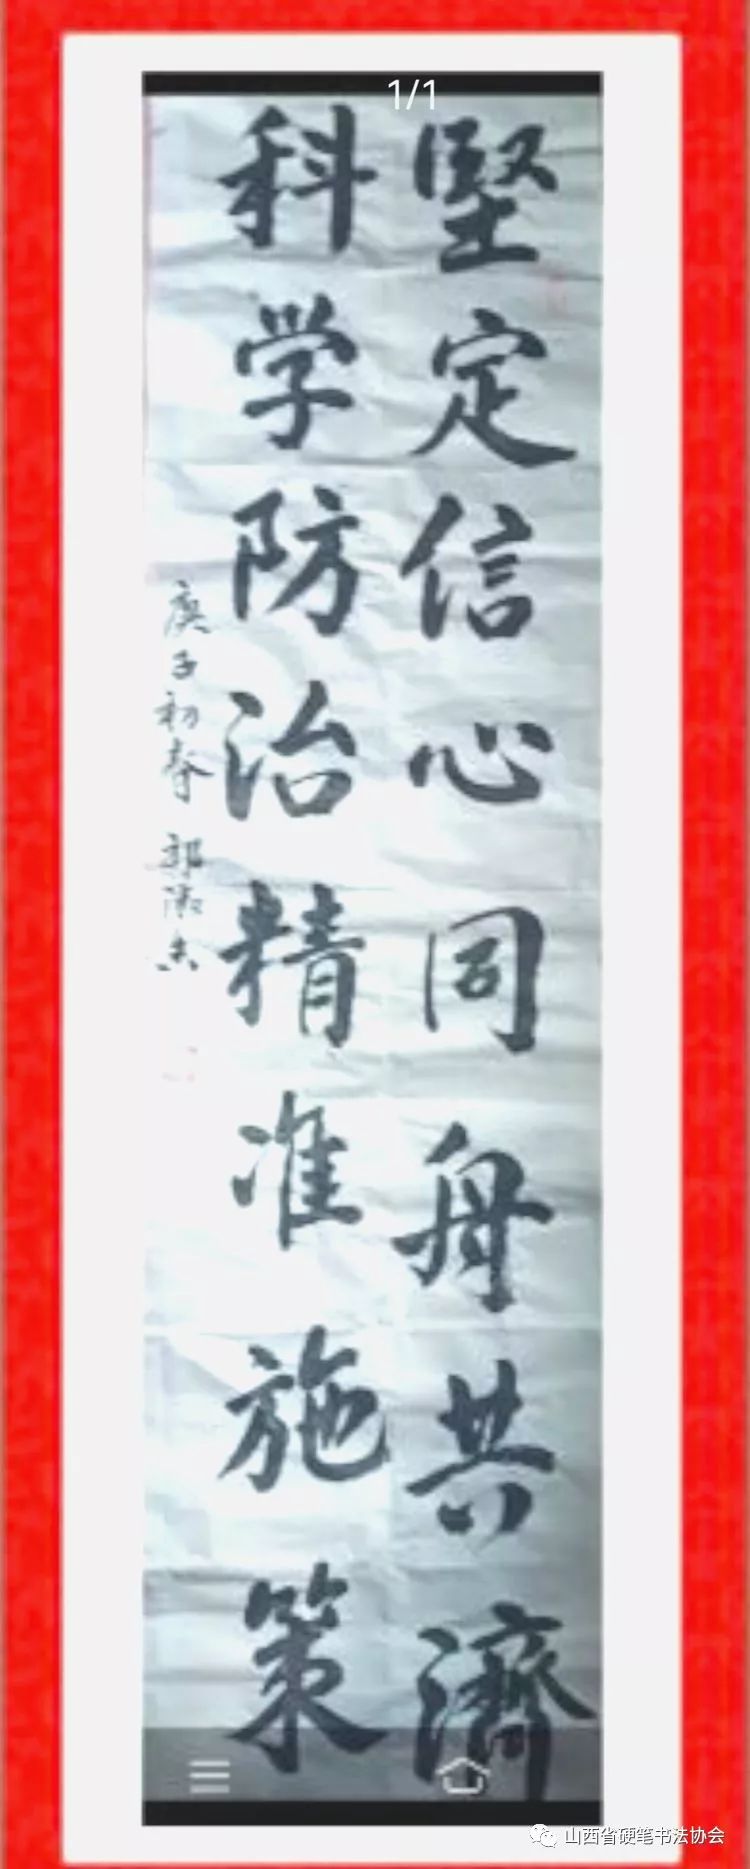 1/1
堅定信心同舟共濟
科学防治精准施策
庚子初春 郭淑香
山西省硬笔书法协会